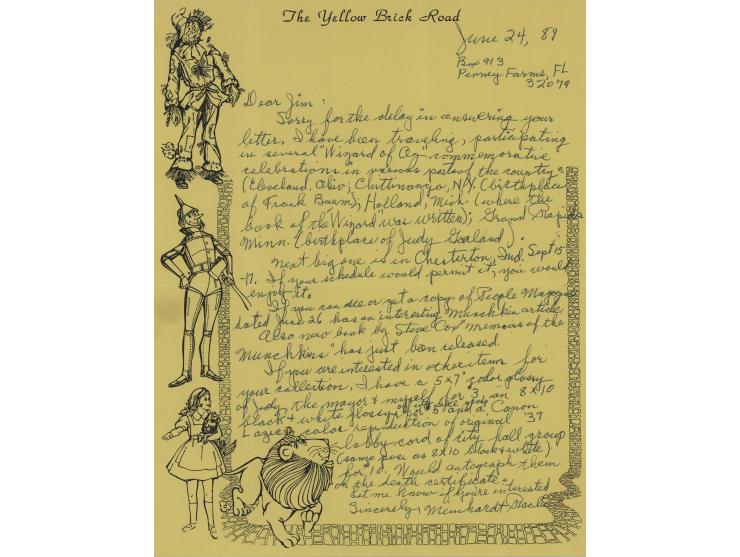 The Yellow Brick Road
June 24, 89
Box 913
Penney Farms, FL
32079
Dear Jim:
Sorry for the delay in answering your
letter. I have been traveling, participating
in several "Wizard of Oz" commemorative
celebrations in various parts of the country
(Cleveland, Ohio; Chittenango, N.Y. (birthplace
of Frank Baum); Holland, Mich. (where the
book of the Wizard was written); Grand Rapids
Minn. (birthplace of Judy Garland
Next big one is in Chesterton, Ind. Sept 15
-17. If your schedule would permit it, you would
enjoy it.
If you can see or get a copy of People Magazine
dated June 26 has an interesting Munchkin article.
Also new book by Steve Cox "Memoirs of the
Munchkins" has just been released.
If you are interested in other items for
your collection, I have a 5x7" color glossy
of Judy, the mayor & myself for 3, an 8X10
black & white glossy for 5 and a Canon
Lazer color reproduction of original '39
lobby card of city hall group
(same pose as 8x10 black & white)
for 10. Would autograph them
on the death certificate.
Let me know if you're interested
Sincerely, Meinhardt Raabe